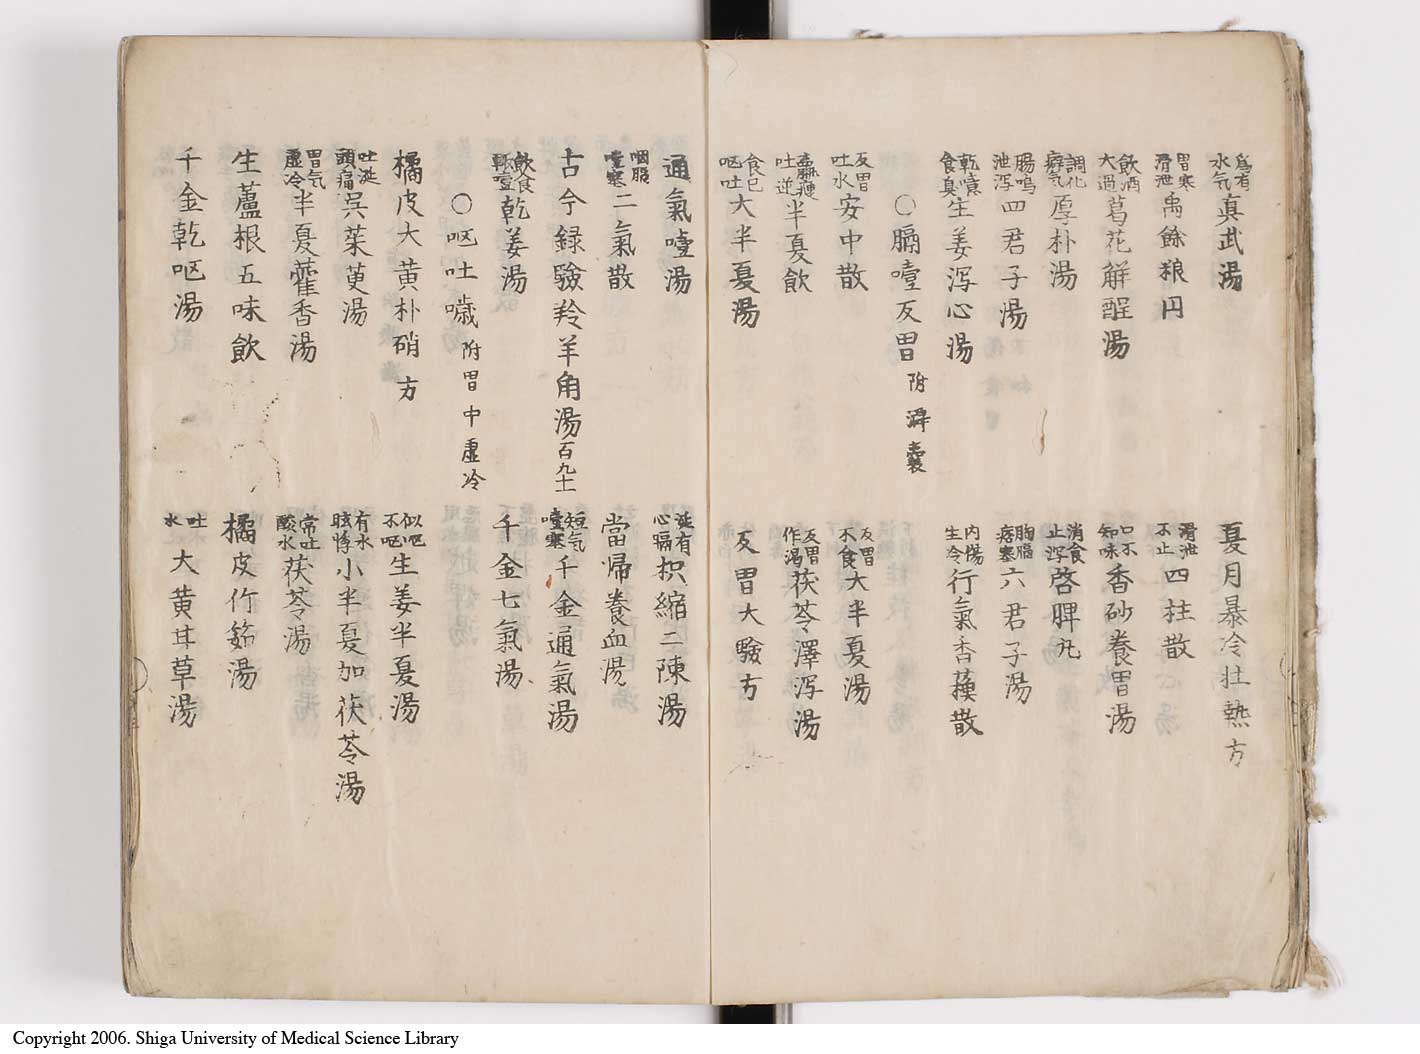 爲有水气真武湯
夏月暴冷壮熱方
胃寒滑泄禹餘粮円
滑泄不止四柱散
飲酒大過葛花解酲湯
口不知味香砂養胃湯
調化癖气厚朴湯
消食止泻啓脾丸
腸鳴泄泻四君子湯
胸膈痞塞六君子湯
乾噫食臭生姜泻心湯
内傷生冷行氣香薷散
〇膈噎反胃 附澼囊
反胃吐水安中散
反胃不食大半夏湯
羸瘦吐逆半夏飲
反胃作渇茯苓澤泻湯
食已呕吐大半夏湯
反胃大驗方
通氣噎湯
涎有心膈枳縮二陳湯
咽膈噎塞二氣散
當帰養血湯
古今録驗羚羊角湯百九十一
短气噎塞千金通氣湯
飲食輒噎乾姜湯
千金七氣湯
〇呕吐噦附胃中虚冷
橘皮大黄朴硝方
似呕不呕生姜半夏湯
吐涎頭痛呉茱萸湯
有水眩悸小半夏加茯苓湯
胃气虚冷半夏藿香湯
常吐酸水茯苓湯
生蘆根五味飲
橘皮竹茹湯
千金乾呕湯
吐水大黄甘草湯
Copyright 2006. Shiga University of Medical Science Library